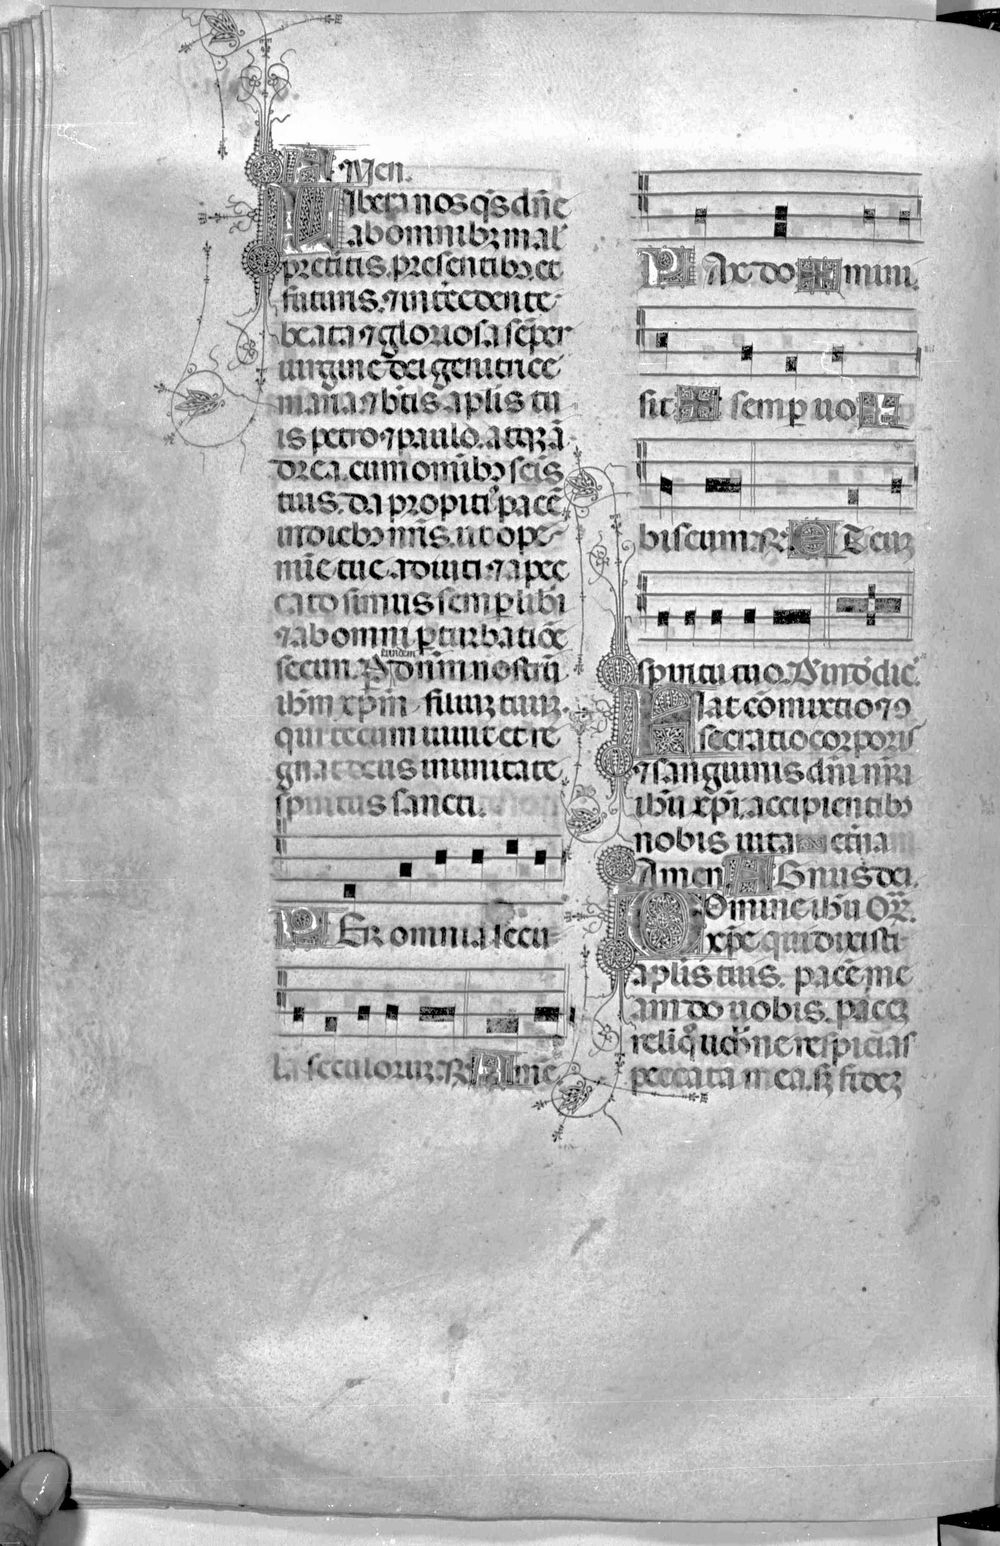 Amen.
Libera nos qs dñe
ab omnibꝫ mal
preteitis. presentibꝫ et
futuris. ⁊ intecedente
beata ⁊ gloriosa sēper
uirgine dei genitrice
maria ⁊ btis aplis tu
is petro ⁊ paulo. atqꝫ ā
drea. cum omibꝫ scis
tuis. da propiti᷒ pacē
in diebꝫ nr̄is. ut ope
mīe tue adiuti ⁊ a pec
cato simus semp libi
⁊ ab omni ꝑturbatiōe
securi. P eundem dnm nostrū
ihm xpm filiuꝫ tuuꝫ.
qui tecum uiuit et re
gnat deus in unitate
spiritus sancti.
PEr omnia secu
la seculoruꝫ. ℟ Amē.
PAx do✠mini.
sit ✠ semp uo✠
biscum. ℟ ET cuꝫ
spiritu tuo.
Fiat cōmixtio ⁊ ꝯ
secratio corporis
⁊ sanguinis dn̄i nr̄i
ihu xp̄i. accipientibꝫ
nobis uita etnam
Amen. AGnus dei.
Domine ihu Or̄.
xp̄e qui dixisti
aplis tuis. pacē me
am do uobis. paceꝫ
relinq̊ uob ne respicias
peccata mea. sꝫ fideꝫ